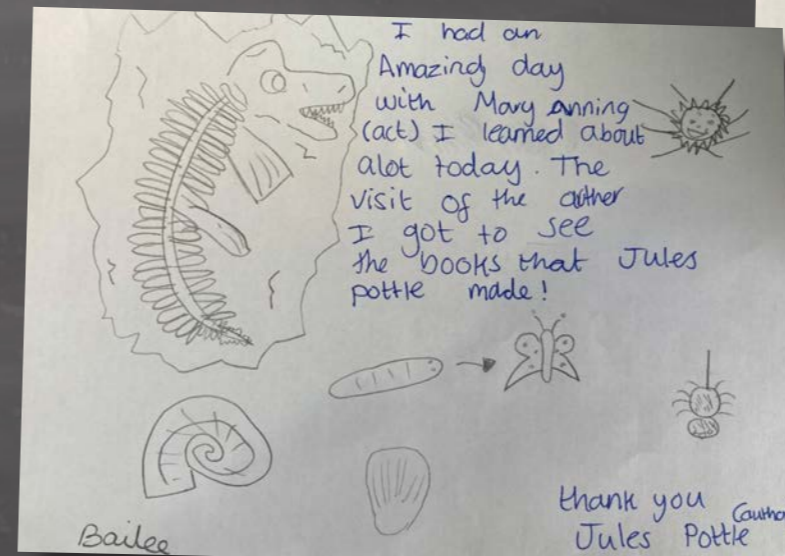 I had an
Amazing day
with Mary anning
(act) I learned about
alot today. The
visit of the auther
I got to see
the books that Jules
pottle made!
thank you (autho
Jules Pottle
Bailee